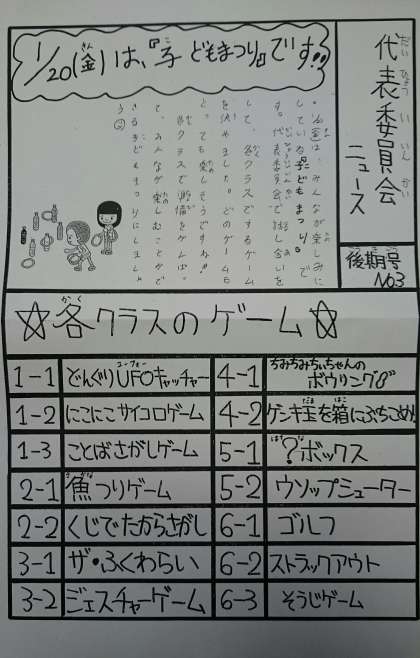 1/20(金)は、『子どもまつり』です!!
代表委員会
ニュース
後期号
No.3
今週は、みんなが楽しみに
している『子どもまつり』で
す。代表委員会で話し合いを
して、各クラスでするゲーム
を決めました。どのゲームも
とっても楽しそうですね!
各クラスで準備をがんば
って、みんなが楽しむことがで
きる子どもまつりにしましょ
う
☆各クラスのゲーム☆
1-1 どんぐりUFOキャッチャー
1-2 にこにこサイコロゲーム
1-3 ことばさがしゲーム
2-1 魚つりゲーム
2-2 くじでたからさがし
3-1 ザ・ふくわらい
3-2 ジェスチャーゲーム
4-1 ちみちみちぃちゃんの
ボウリング
4-2 ゲンキ玉を箱にぶちこめ!
5-1 ?ボックス
5-2 ウソップシューター
6-1 ゴルフ
6-2 ストラックアウト
6-3 そうじゲーム